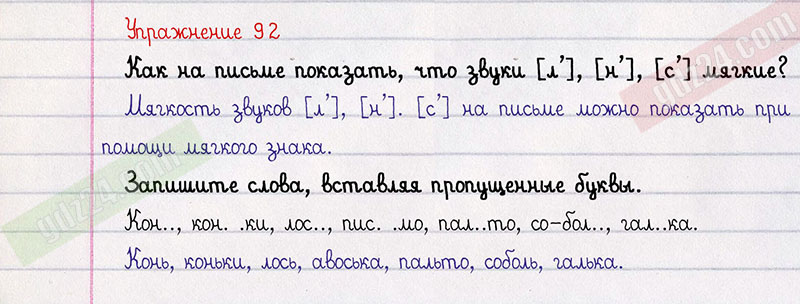 Упражнение 92
Как на письме показать, что звуки [л’], [н’], [с’] мягкие?
Мягкость звуков [л’], [н’]. [с’] на письме можно показать при
помощи мягкого знака.
Запишите слова, вставляя пропущенные буквы.
Кон.., кон. .ки, лос.., пис. .мо, пал..то, со-бол.., гал..ка.
Конь, коньки, лось, авоська, пальто, соболь, галька.
gdz24.com
gdz24.com